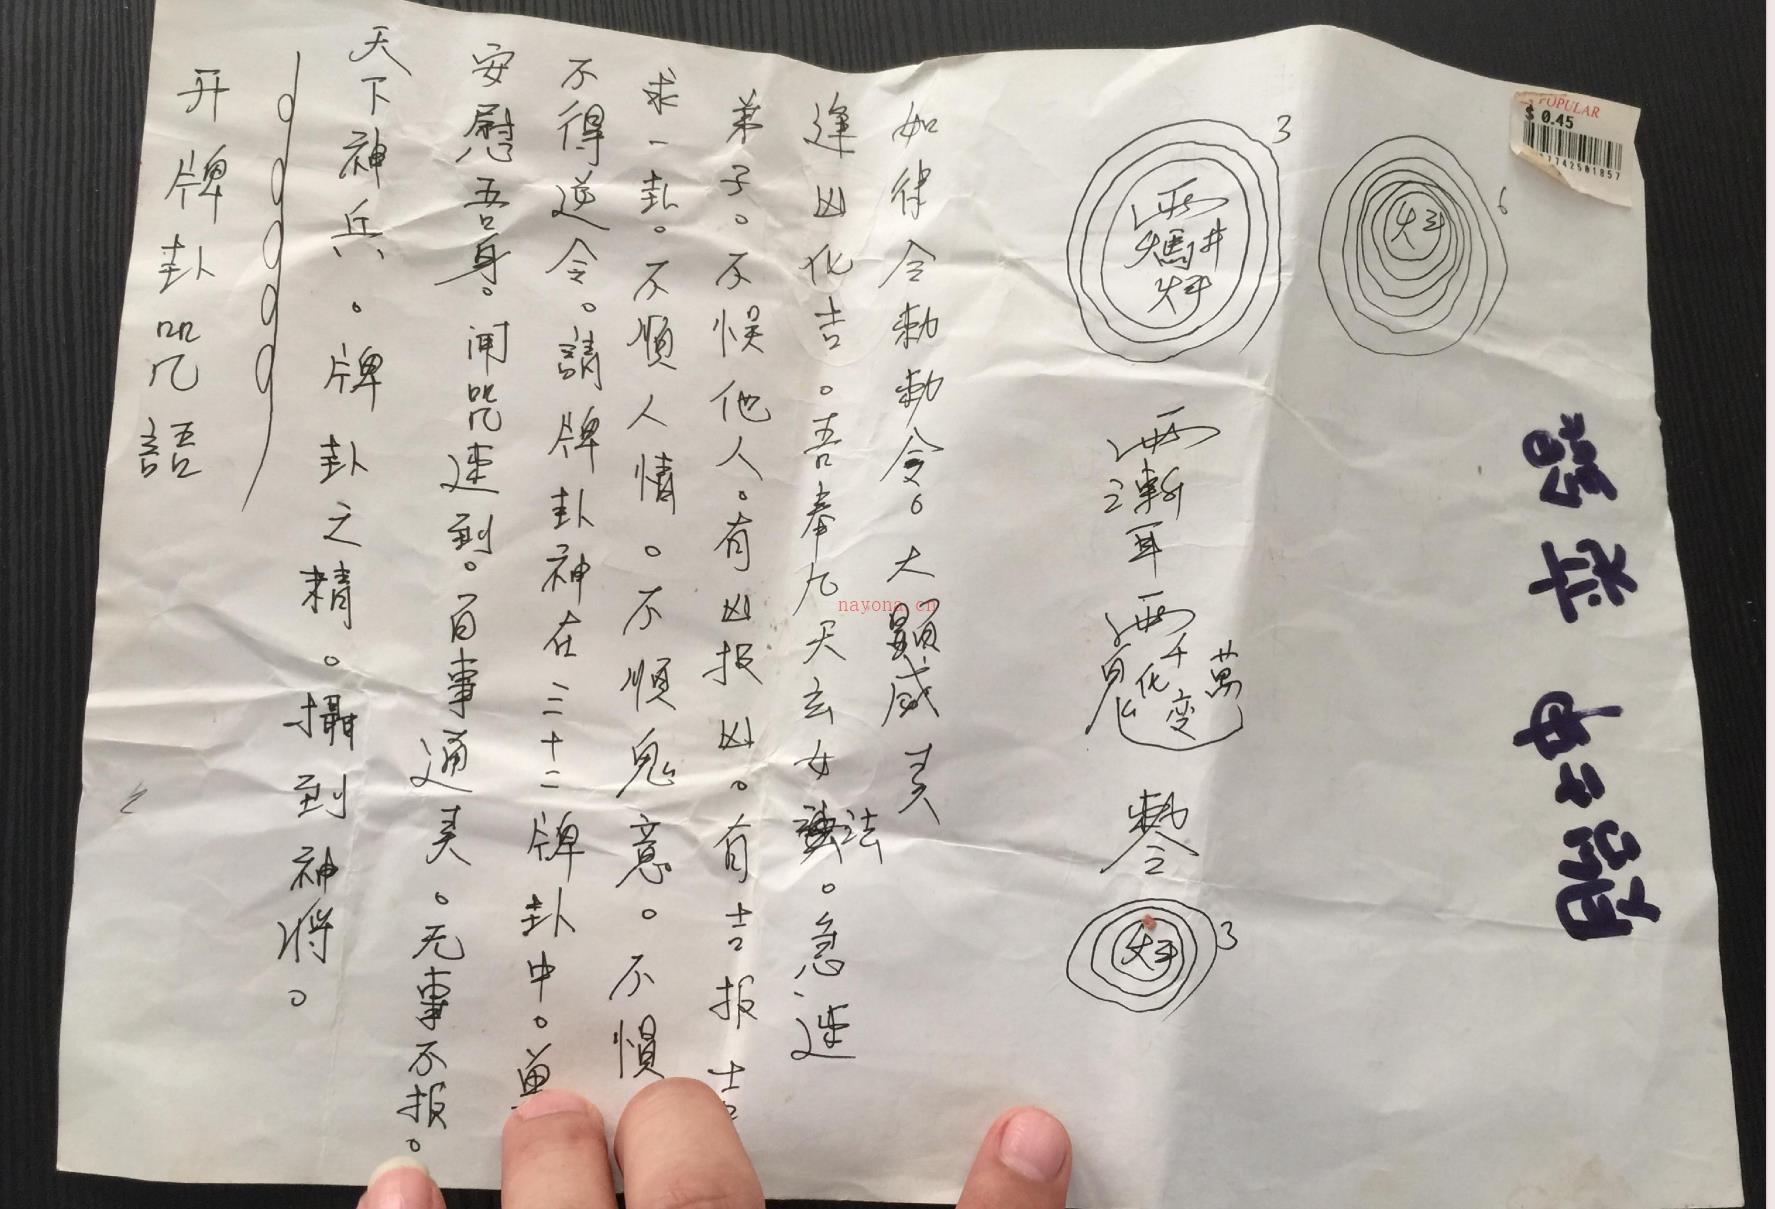 开牌卦咒語
天下神兵。牌卦之精。攝到神將。
安慰吾身。闻咒速到。百事通灵。无事不报。
不得逆令。請牌卦神在三十二牌卦中。
求一卦。不順人情。不順鬼意。不惧
弟子。不悞他人。有凶报凶。有吉报吉
逢凶化吉。吾奉九天玄女法。急速
如律令勅勅令。大顯威灵
3
千化变萬
勅令
3
6
POPULAR
$ 0.45
7742501857
nayona.cn